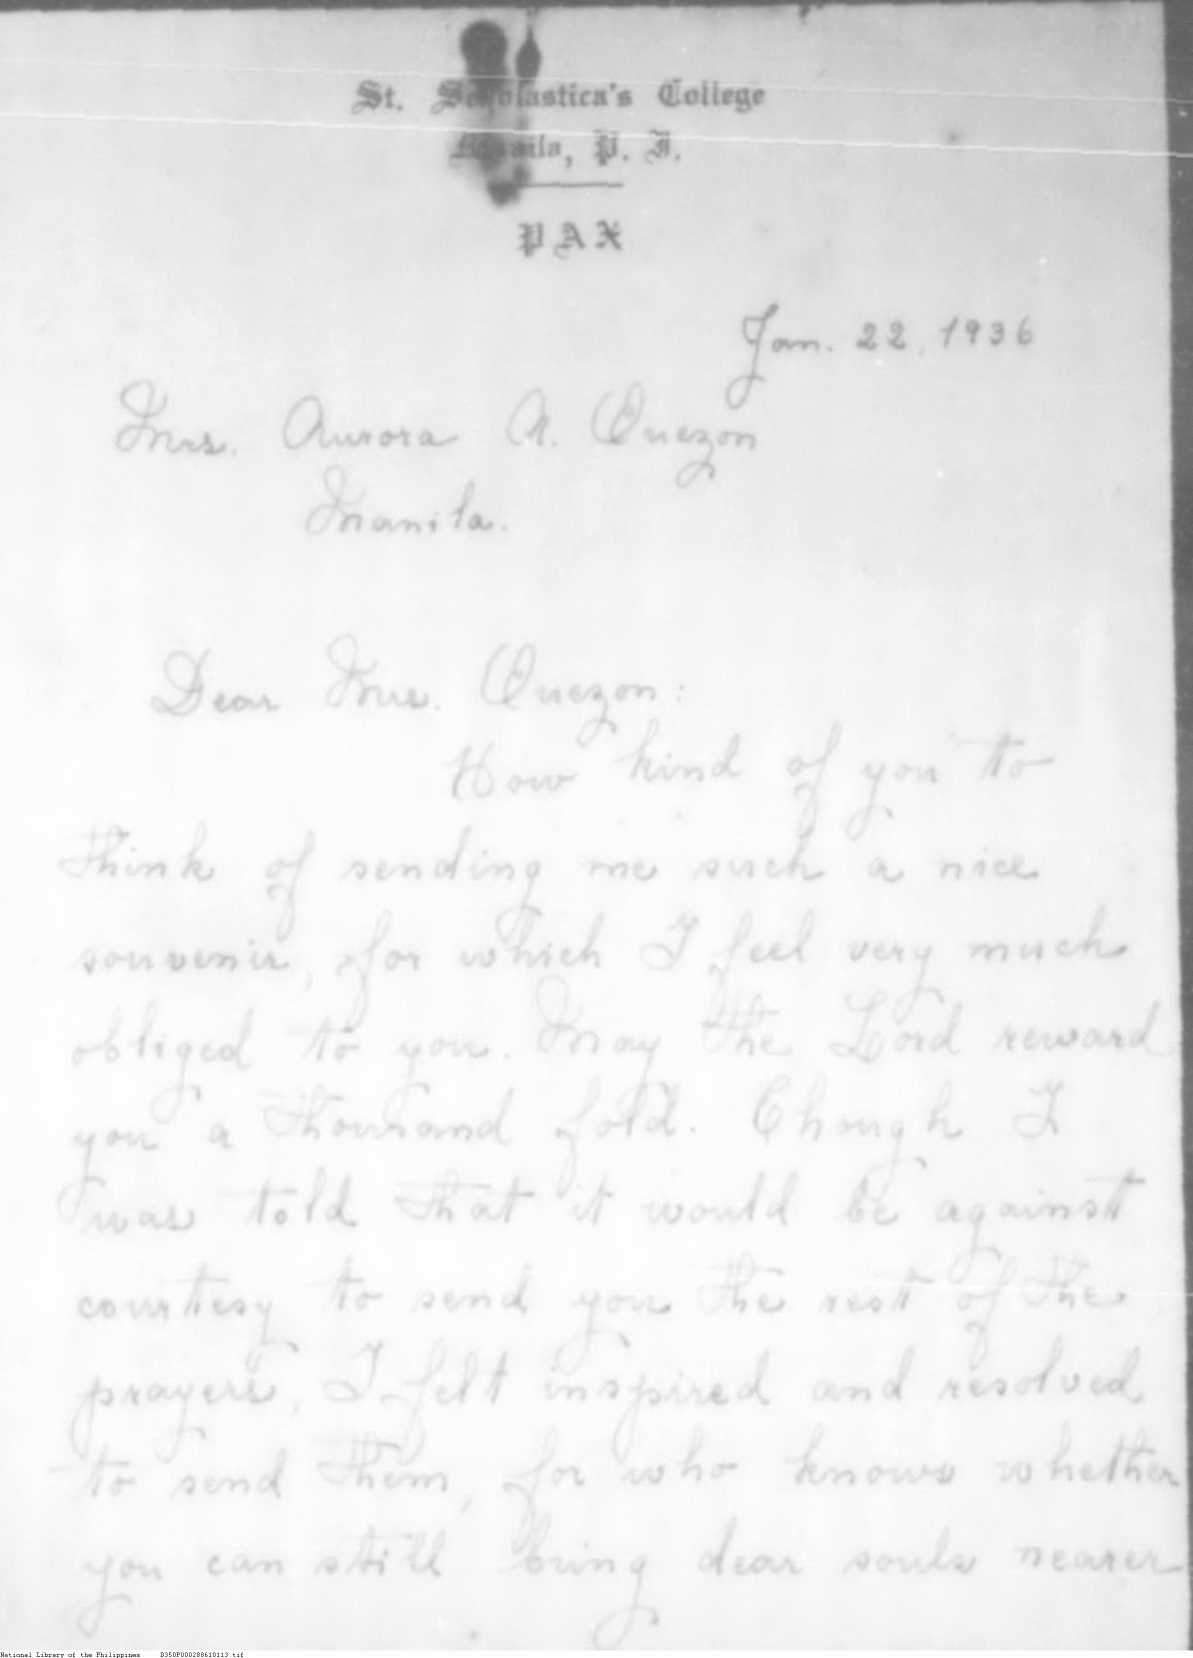 St. Scholastica's College
Manila, P. I.
PAX
Jan. 22, 1936
Mrs. Aurora A. Quezon
Manila.
Dear Mrs. Quezon:
How kind of you to
think of sending me such a nice
souvenir, for which I feel very much
obliged to you. May the Lord reward
you a thousand fold. Though I
was told that it would be against
courtesy to send you the rest of the
prayers, I felt inspired and resolved
to send them, for who knows whether
you can still bring dear souls nearer
National Library of the Philippines D350P000288610113.tif